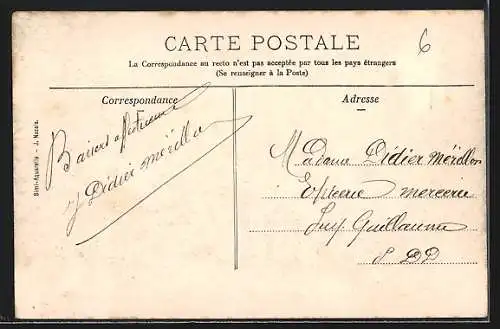 6
CARTE POSTALE
La Correspondance au recto n'est pas acceptée par tous les pays étrangers
(Se renseigner à la Poste)
Correspondance
Adresse
Baisers affectueux
Didier Mérillon
Madame Didier Mérillon
Epicerie mercerie
Guillaume
Semi-Aquarelle - J. Nozais.